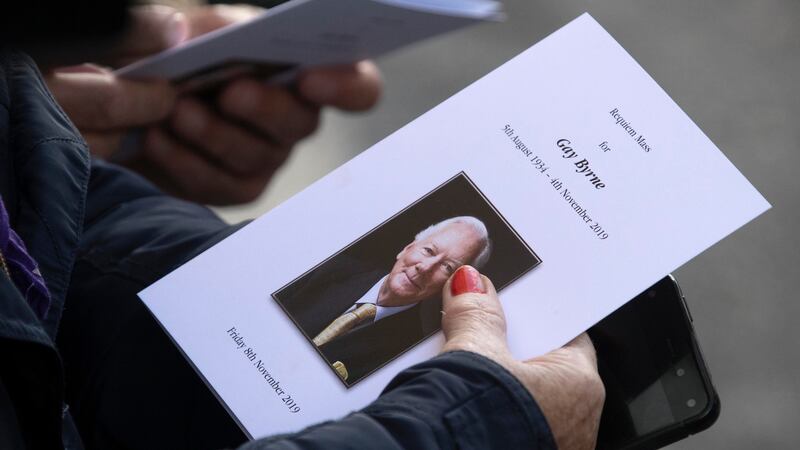 Requiem Mass
for
Gay Byrne
5th August 1934 – 4th November 2019
Friday 8th November 2019